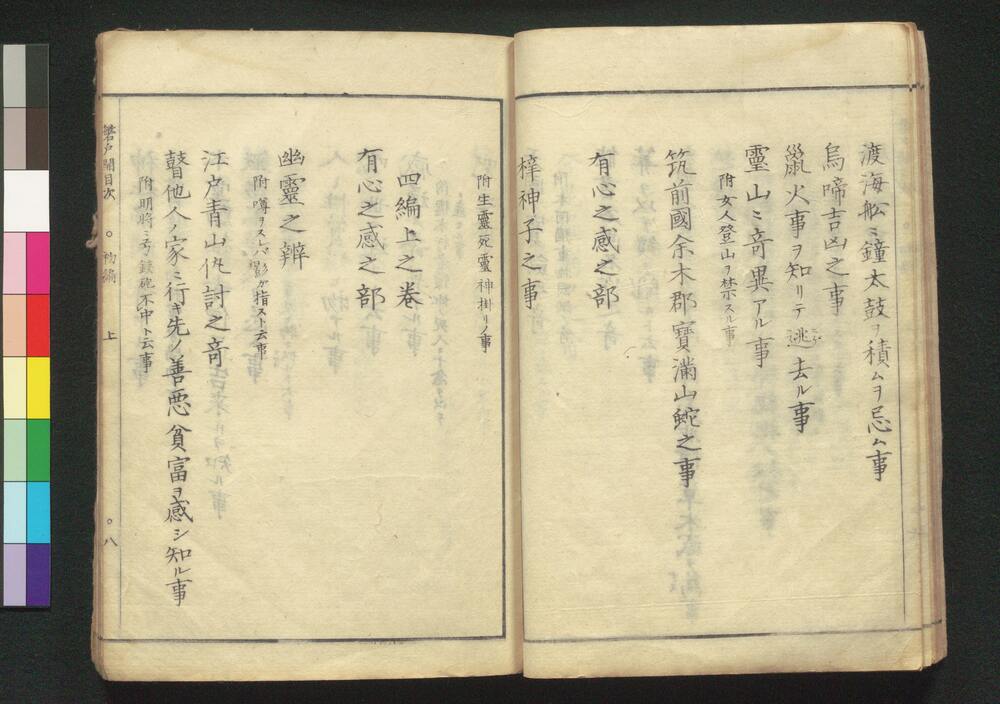 渡海舩ニ鐘太鼓ヲ積ムヲ忌ム事
烏啼吉凶之事
鼠火事ヲ知リテ逃去ル事
靈山ニ竒異アル事
附女人登山ヲ禁スル事
筑前國余木郡寶滿山蛇之事
有心之感之部
梓神子之事
附生靈死靈神掛リノ事
四編上之巻
有心之感之部
幽靈之辨
附噂ヲスレバ影ガ指スト云事
江戸青山仇討之竒
瞽他人ノ家ニ行キ先ノ善悪貧富ヲ感シ知ル事
附明將ニ弓鉄砲不中ト云事
磐戸開目次 ○ 初編 上 ○八